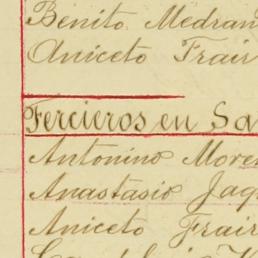 Benito Medran
Aniceto Frair
Fercieros en Sa
Antonino More
Anastasio Jaq
Aniceto Frair